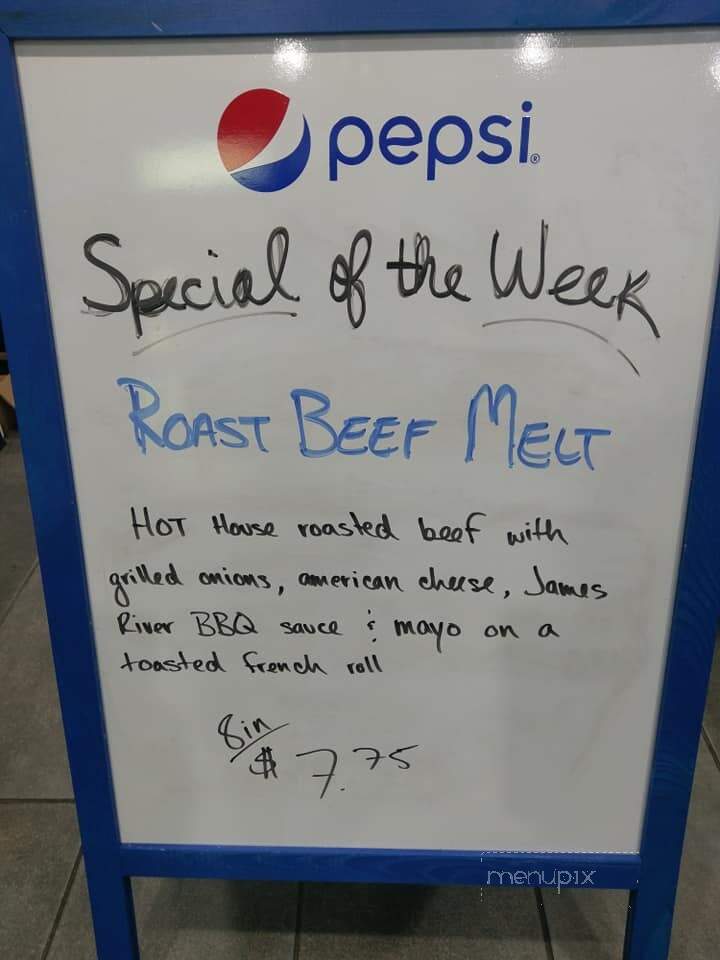 pepsi®
Special of the Week
ROAST BEEF MELT
HOT House roasted beef with
grilled onions, american cheese, James
River BBQ sauce & mayo on a
toasted french roll
8in
$ 7.75
menupix